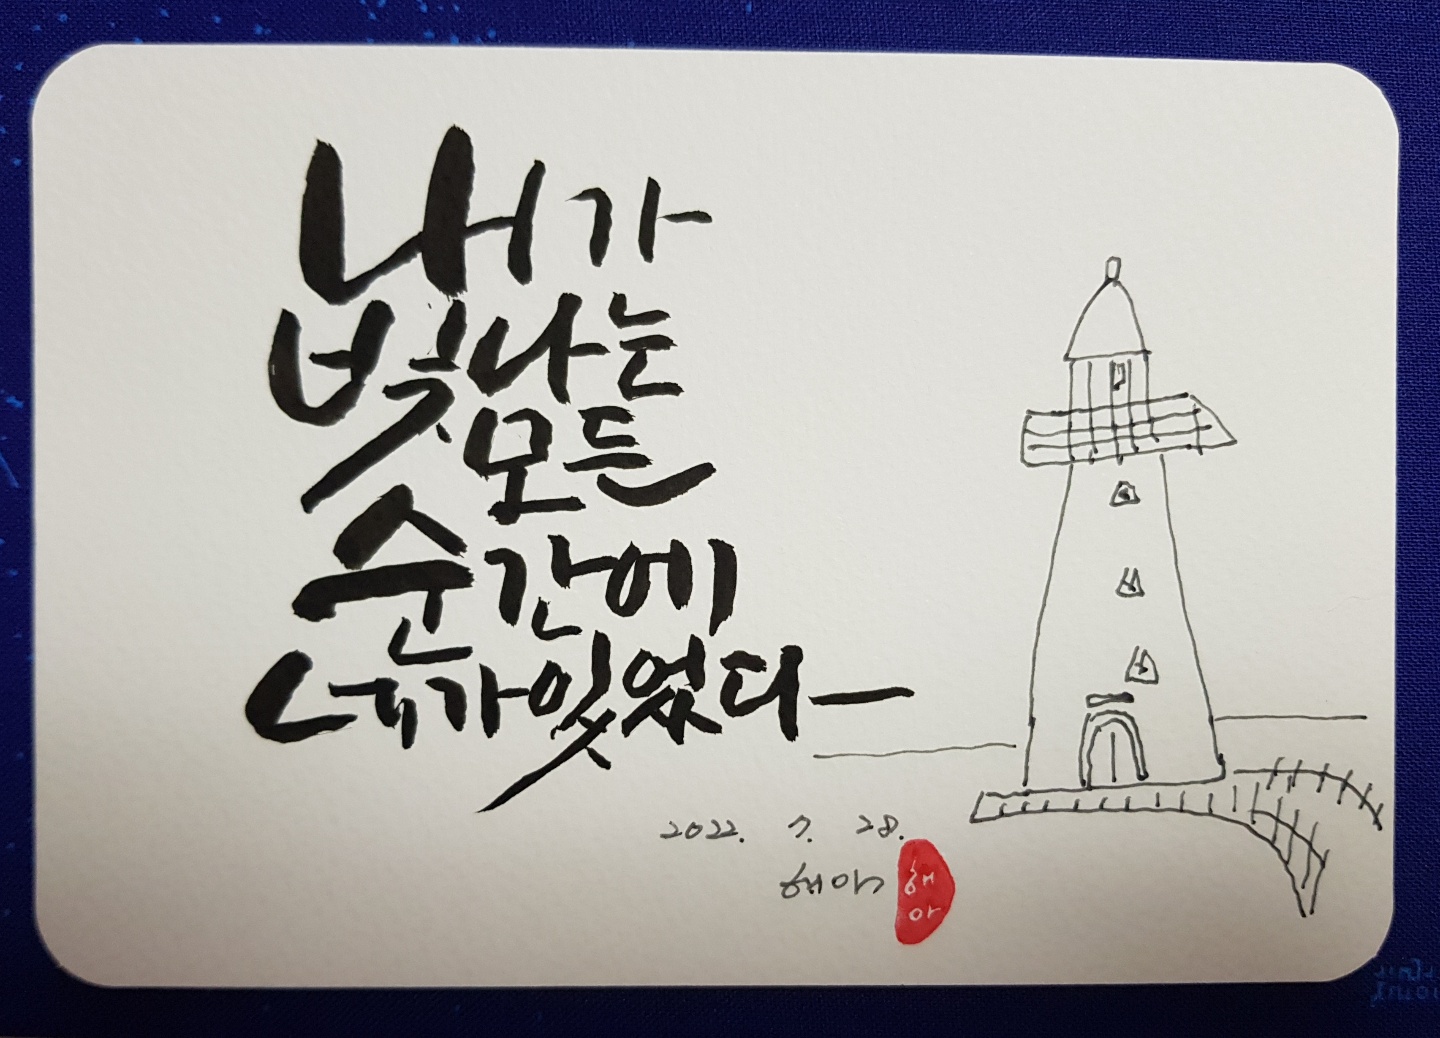 내가
빛나는
모든
순간에
네가 있었다
2022. 7. 28.
해아
해아